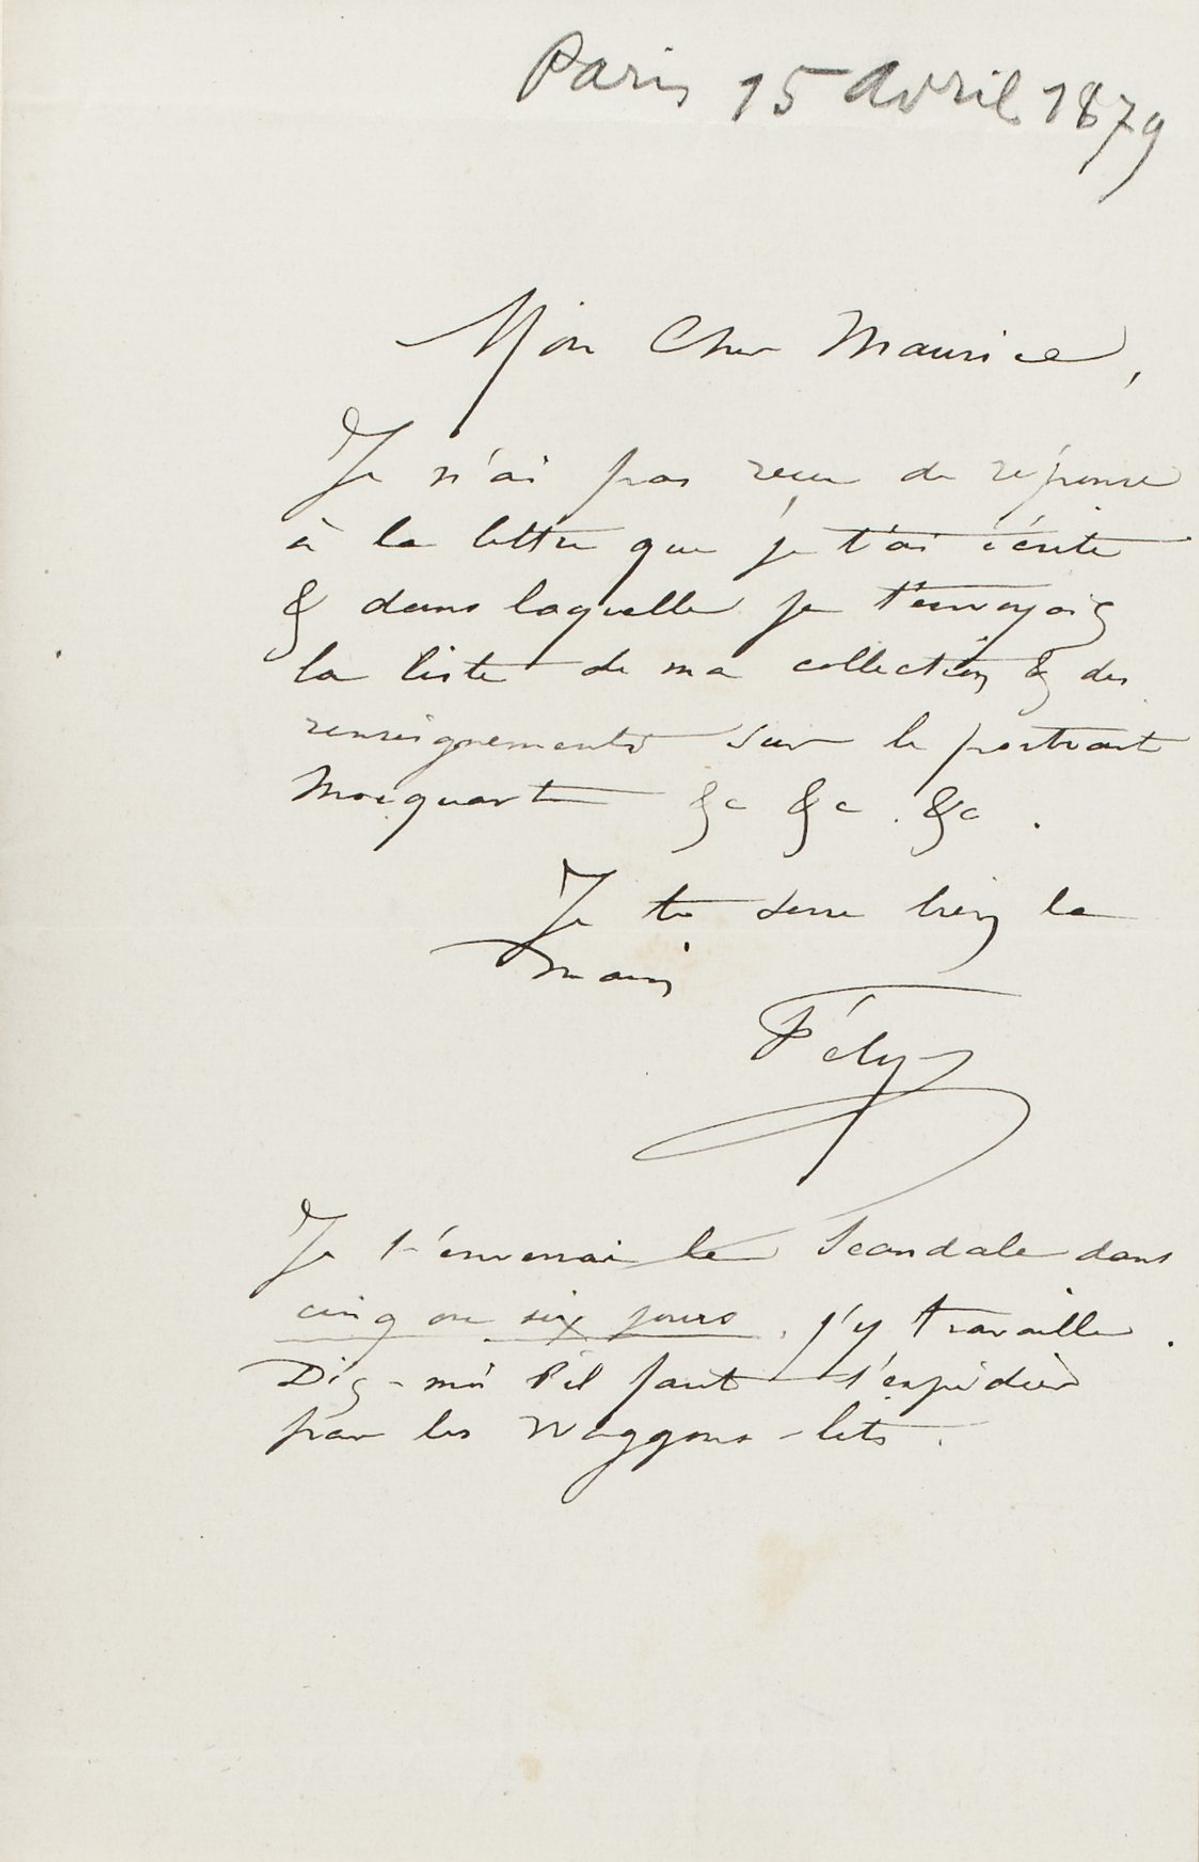 Paris 15 Avril 1879
Mon Cher Maurice,
Je n'ai pas reçu de réponse
à la lettre que je t'ai écrite
& dans laquelle je t'envoyais
la liste de ma collection & des
renseignements sur le portrait
Mocquart &c &c . &c .
Je te serre bien la
main
Fély
Je t'enverrai le Scandale dans
cinq ou six jours. j'y travaille.
Dis-moi s'il faut t'expédier
par les Waggons-lits.